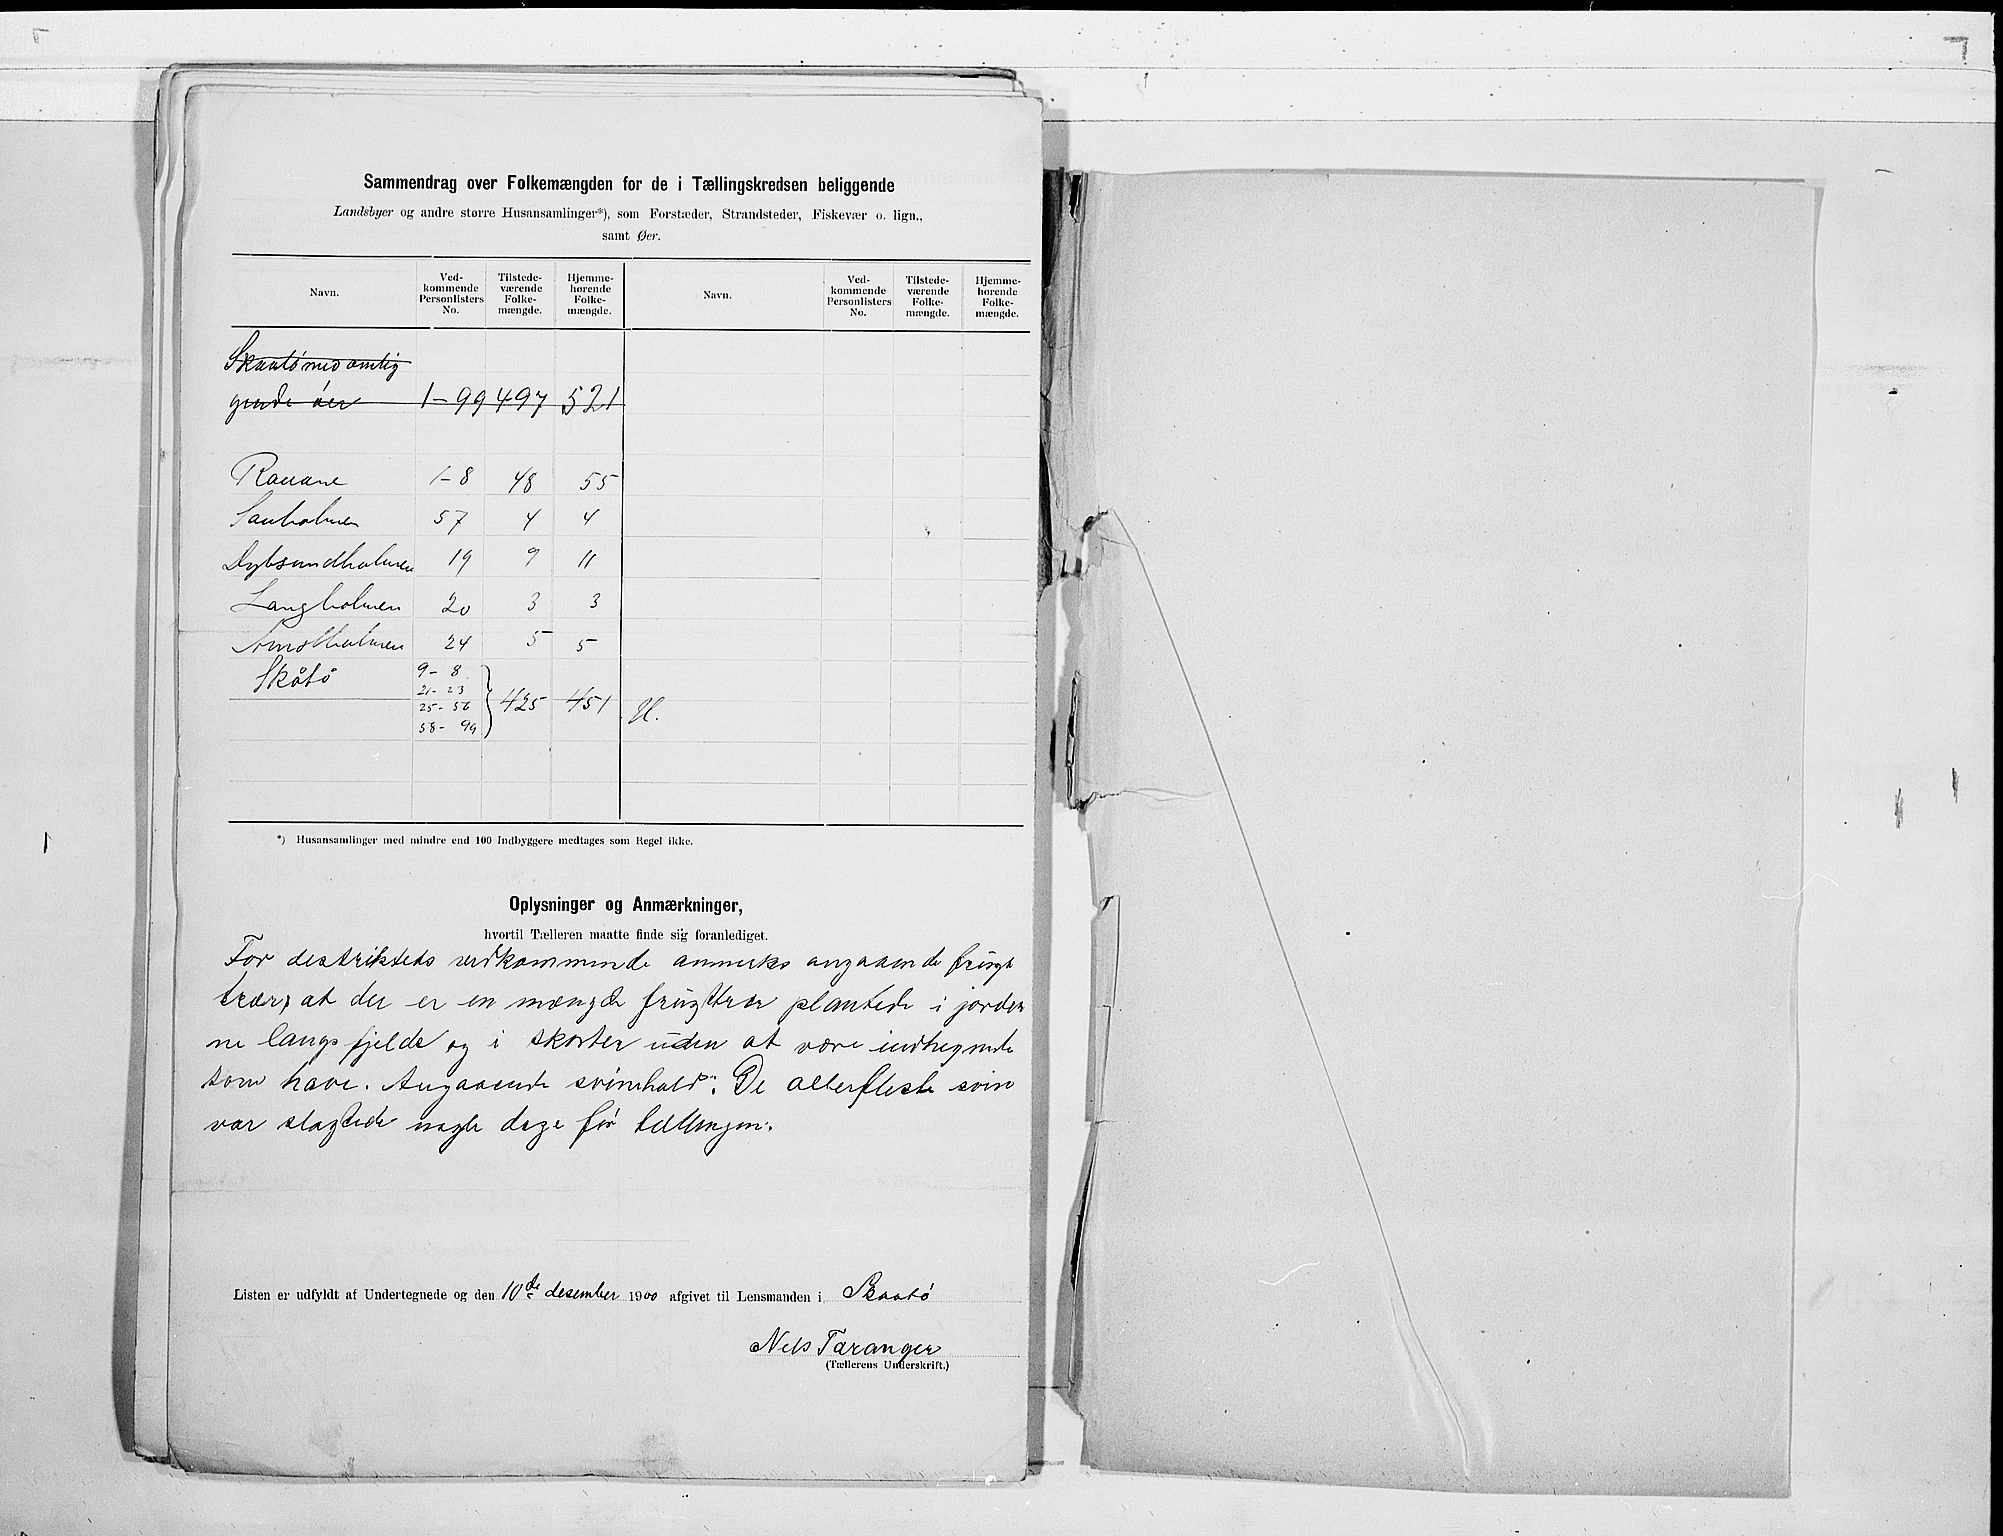 Sammendrag over Folkemængden for de i Tællingskredsen beliggende
Landsbyer og andre større Husansamlinger*), som Forstæder, Strandsteder, Fiskevær o. lign.,
samt Øer.
Navn. Ved-kommende Personlisters No. Tilstede-værende Folke-mængde. Hjemme-hørende Folke-mængde. Navn. Ved-kommende Personlisters No. Tilstede-værende Folke-mængde. Hjemme-hørende Folke-mængde.
Skaatö med omlig
gende öer 1-99 497 521
Rauane 1-8 48 55
Sauholmen 57 4 4
Dybsundholmen 19 9 11
Langholmen 20 3 3
Arndtholmen 24 5 5
Skåtö 9- 8
21- 23
25- 56 425 451 H.
58- 99
*) Husansamlinger med mindre end 100 Indbyggere medtages som Regel ikke.
Oplysninger og Anmærkninger,
hvortil Tælleren maatte finde sig foranlediget.
For destriktets vedkommende anmerks angaaende frugt
trær, at der er en mængde frugttrær plantede i jorder
ne langs fjelde og i skorter uden at være indhegnede
som have. Angaaende svinehold: De allerfleste svin
var slagtede nogle dage før tællingen.
Listen er udfyldt af Undertegnede og den 10de desember 1900 afgivet til Lensmanden i Skaatö
Nels Taranger
(Tællerens Underskrift.)